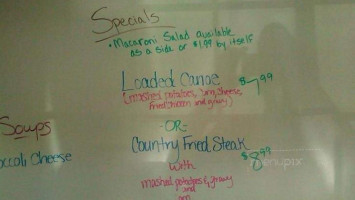 Specials
• Macaroni Salad available
as a side or $1.99 by itself
Loaded Canoe $7.99
(mashed potatoes, corn, cheese,
fried chicken and gravy)
-OR-
Country Fried Steak $8.99
with
mashed potatoes & gravy
and
Soups
occoli Cheese